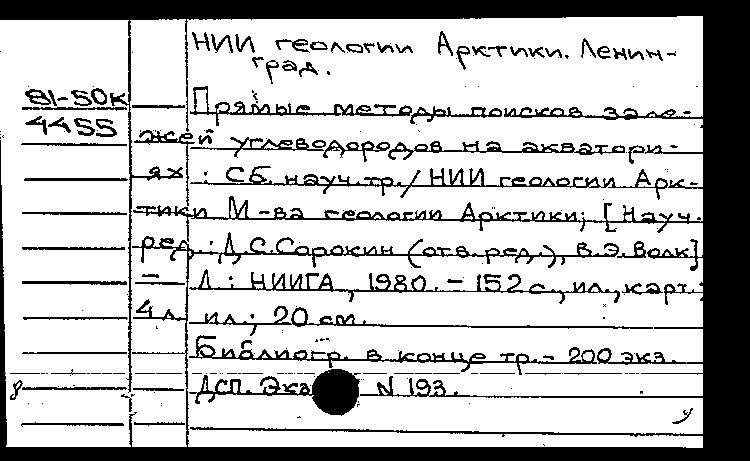 НИИ геологии Арктики. Ленин-
град.
81-50к Прямые методы поисков зале-
4455 жей углеводородов на акватори-
ях : Сб. науч. тр. / НИИ геологии Арк-
тики М-ва геологии Арктики; [Науч.
ред.: Д.С.Сорокин (отв. ред.), В.Э.Волк]
- Л : НИИГА, 1980. - 152 с., ил., карт.;
4 л. ил.; 20 см.
Библиогр. в конце тр. - 200 экз.
8 Дсп. Экз N 193.
у